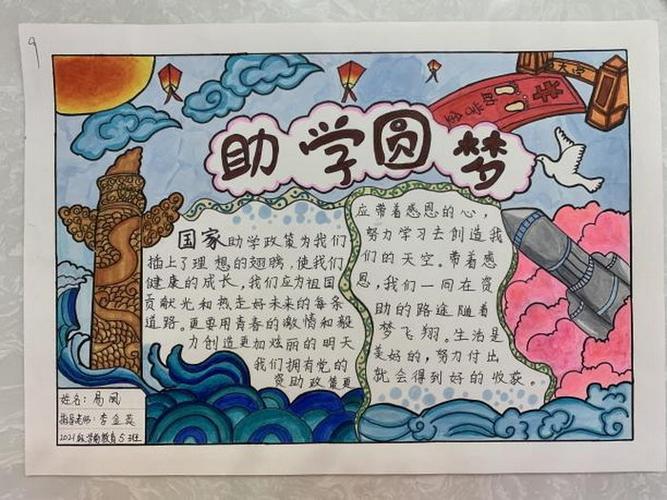 9
助学金
助学圆梦
国家助学政策为我们
插上了理想的翅膀,使我们
健康的成长,我们应为祖国
贡献光和热走好未来的每条
道路。更要用青春的激情和毅
力创造更加炫丽的明天
我们拥有党的
资助政策更
应带着感恩的心,
努力学习去创造我
们的天空。带着感
恩,我们一同在资
助的路途随着
梦飞翔。生活是
美好的,努力付出
就会得到好的收获。
姓名:易凤
指导老师:李金蕊
2021级学前教育5班